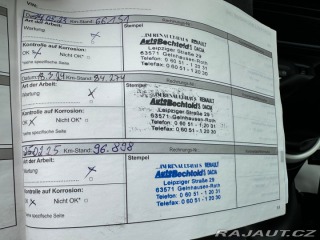 Km-Stand: 66151
Stempel
Rechnungs-Nr.:
Art der Arbeit:
Wartung x
Kontrolle auf Korrosion:
Nicht OK*
siehe spezifische Seite
...IM RENAULTHAUS RENAULT
Auto Bechtold DACIA
Leipziger Straße 29
63571 Gelnhausen-Roth
Telefon: 0 60 51 - 1 20 31
Telefax: 0 60 51 - 1 20 32
Datum Km-Stand: 84.274
Rechnungs-Nr.:
Art der Arbeit:
Stempel
Wartung x
Kontrolle auf Korrosion:
OK x Nicht OK*
siehe spezifische Seite
Auto Bechtold DACIA
Leipziger Straße 29
63571 Gelnhausen-Roth
Telefon: 0 60 51 - 1 20 31
Telefax: 0 60 51 - 1 20 32
Km-Stand: 96.898
Rechnungs-Nr.:
Art der Arbeit:
Stempel
Wartung x
Kontrolle auf Korrosion:
OK x Nicht OK*
siehe spezifische Seite
...IM RENAULTHAUS RENAULT
Auto Bechtold DACIA
Leipziger Straße 29
63571 Gelnhausen-Roth
Telefon: 0 60 51 - 1 20 31
Telefax: 0 60 51 - 1 20 32
RAJAUT.CZ